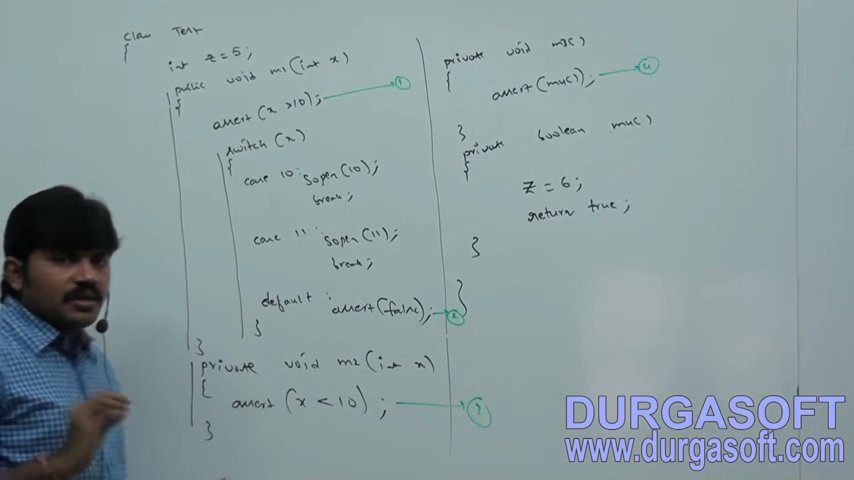 class Test
{
int z=5;
public void m1(int x)
{
assert(x>10); 1
switch(x)
{
case 10: sopln(10);
break;
case 11: sopln(11);
break;
default: assert(false); 2
}
}
private void m2(int x)
{
assert(x<10); 3
}
private void m3()
{
assert(m4()); 4
}
private boolean m4()
{
z=6;
return true;
}
}
DURGASOFT
www.durgasoft.com